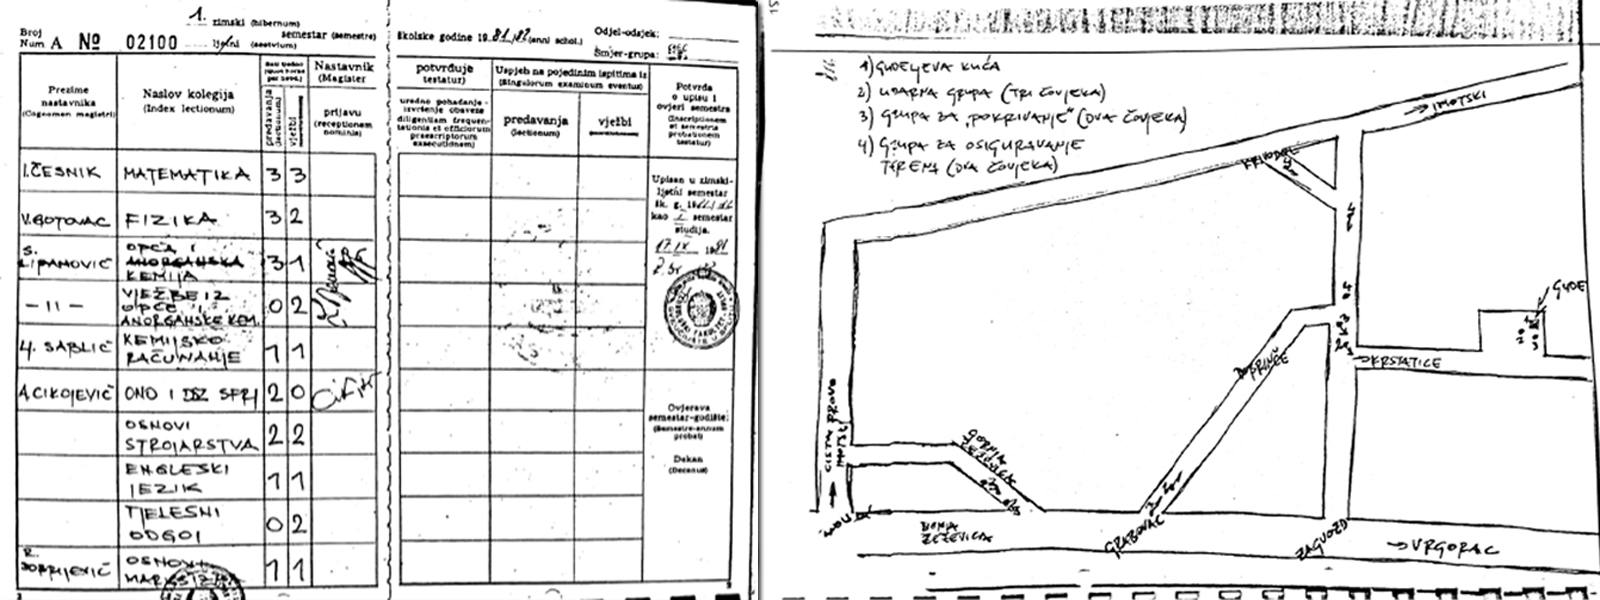 Broj
Num A № 02100
1. zimski (hibernum)
ljetni (aestivum)
semestar (semestre)
školske godine 1981/82 (anni schol.)
Odjel-odsjek:
Smjer-grupa:
Prezime
nastavnika
(Cognomen magistri)
Naslov kolegija
(Index lectionum)
predavanja
(lectionum)
vježbi
Nastavnik
(Magister
prijavu
(receptionem
nominis)
potvrđuje
testatur)
uredno pohađanje -
izvršenje obaveze
diligentiam frequen-
tationis et officiorum
praescriptorum
exsecutionem)
Uspjeh na pojedinim ispitima iz
(Singulorum examinum eventus)
predavanja
(lectionum)
vježbi
Potvrda
o upisu i
ovjeri semestra
(Inscriptionem
et semestris
probationem
testatur)
I. ČESNIK MATEMATIKA 3 3
V. BOTOVAC FIZIKA 3 2
S.
LIPANOVIĆ OPĆA I
ANORGANSKA
KEMIJA 3 1
-11- VJEŽBE IZ
OPĆE I
ANORGANSKE KEM. 0 2
Y. SABLIĆ KEMIJSKO
RAČUNANJE 1 1
A. CIKOJEVIĆ ONO I DSZ SFRJ 2 0
OSNOVI
STROJARSTVA 2 2
ENGLESKI
JEZIK 1 1
TJELESNI
ODGOJ 0 2
OSNOVI 1 1
Upisan u zimski-
ljetni semestar
šk. g.
kao semestar
studija.
17 IX 1981
Ovjerava
semestar-godište:
(Semestre-annum
probat)
Dekan
(Decanus)
1) GUDELJEVA KUĆA
2) UDARNA GRUPA (TRI ČOVJEKA)
3) GRUPA ZA "POKRIVANJE" (DVA ČOVJEKA)
4) GRUPA ZA OSIGURAVANJE
TERENA (DVA ČOVJEKA)
→ IMOTSKI
KRIVODOL
GUDE
→ KRSTATICE
DOPRINČ
CISTA PROVO
GORNJA
DONJA
ZEŽEVICA
GRABOVAC
ZAGVOZD
→ VRGORAC